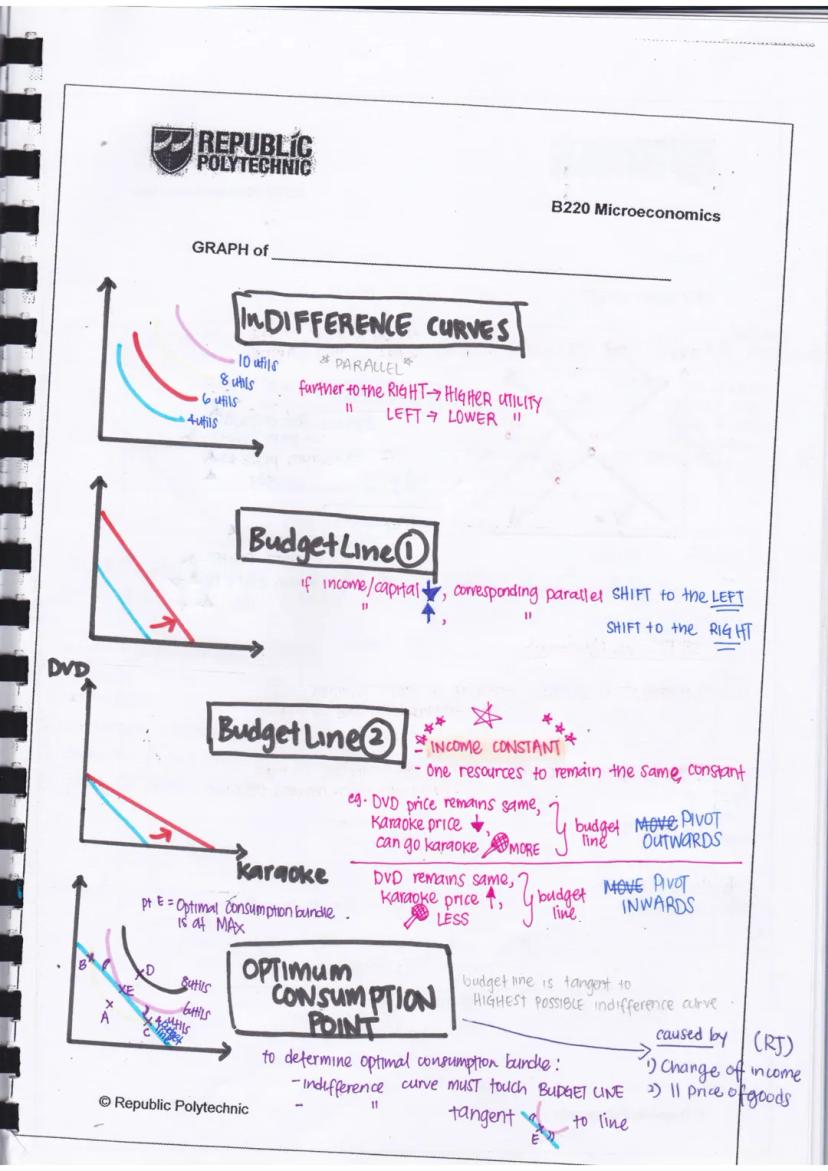 REPUBLIC
POLYTECHNIC
B220 Microeconomics
GRAPH of
InDIFFERENCE CURVES
10 utils
8 utils
6 utils
4utils
* PARALLEL *
further to the RIGHT → HIGHER UTILITY
" LEFT → LOWER "
Budget Line ①
if income/capital ↓, corresponding parallel SHIFT to the LEFT
" ↑, " SHIFT to the RIGHT
DVD
Karaoke
Budget Line ②
- INCOME CONSTANT
- One resources to remain the same, constant
eg. DVD price remains same,
Karaoke price ↓,
can go karaoke MORE
budget
line
MOVE PIVOT
OUTWARDS
DVD remains same,
Karaoke price ↑,
LESS
budget
line
MOVE PIVOT
INWARDS
pt E = Optimal consumption bundle
is at MAX
B
D
E
A
C
8utils
6utils
4utils
OPTIMUM
CONSUMPTION
POINT
budget line is tangent to
HIGHEST POSSIBLE indifference curve
caused by (RJ)
1) Change of income
2) 11 price of goods
to determine optimal consumption bundle:
- indifference curve MUST touch BUDGET LINE
- " tangent E to line
© Republic Polytechnic